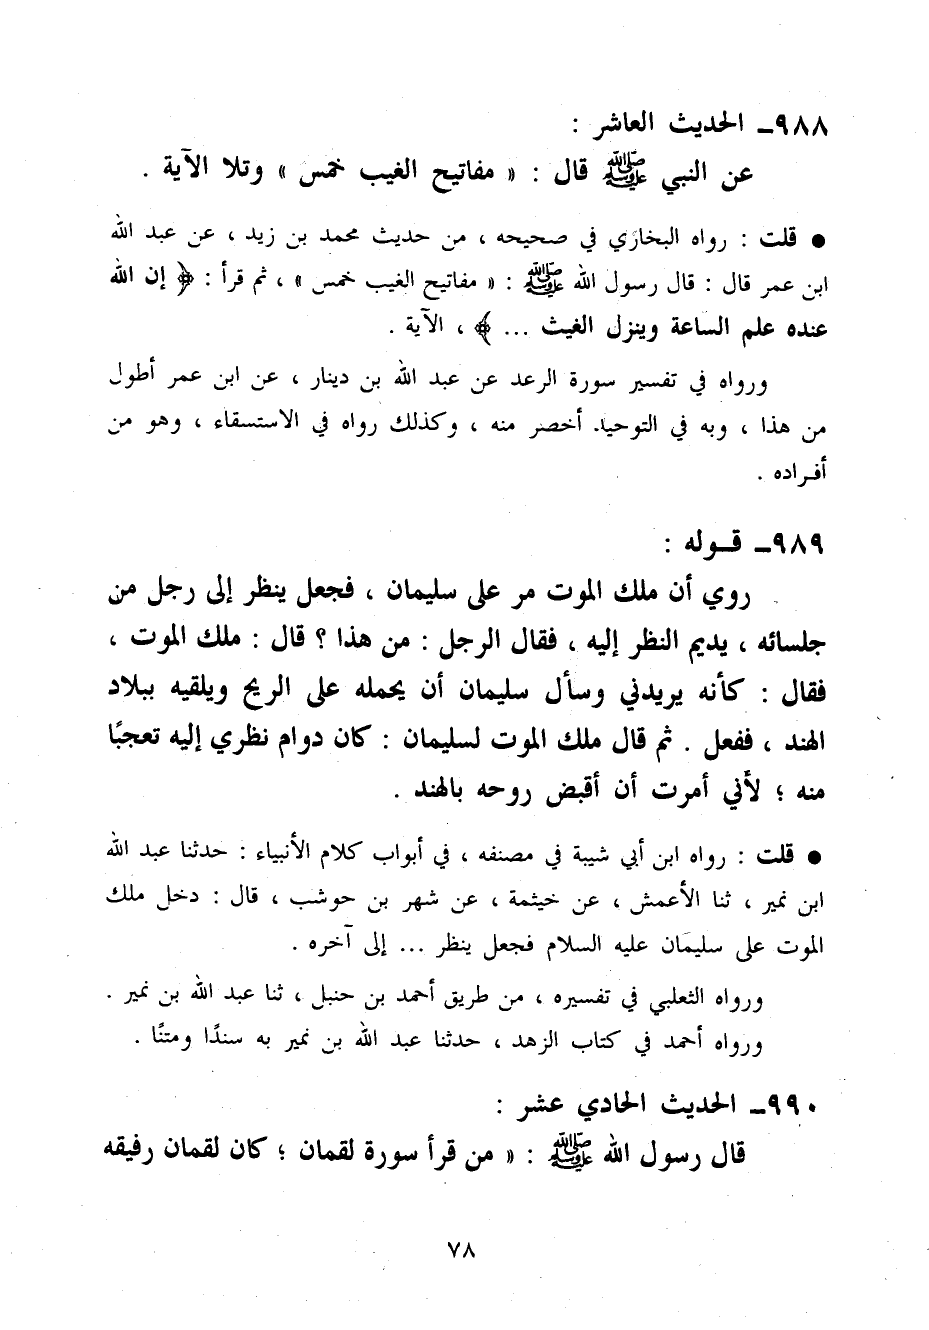 ٩٨٨ـ الحديث العاشر :
عن النبي ﷺ قال : « مفاتيح الغيب خمس » وتلا الآية .
● قلت : رواه البخاري في صحيحه ، من حديث محمد بن زيد ، عن عبد الله
ابن عمر قال : قال رسول الله ﷺ : « مفاتيح الغيب خمس » ، ثم قرأ : ﴿ إن الله
عنده علم الساعة وينزل الغيث ... ﴾ ، الآية .
ورواه في تفسير سورة الرعد عن عبد الله بن دينار ، عن ابن عمر أطول
من هذا ، وبه في التوحيد أخصر منه ، وكذلك رواه في الاستسقاء ، وهو من
أفـراده .
٩٨٩ـ قـوله :
روي أن ملك الموت مر على سليمان ، فجعل ينظر إلى رجل من
جلسائه ، يديم النظر إليه ، فقال الرجل : من هذا ؟ قال : ملك الموت ،
فقال : كأنه يريدني وسأل سليمان أن يحمله على الريح ويلقيه ببلاد
الهند ، ففعل . ثم قال ملك الموت لسليمان : كان دوام نظري إليه تعجبًا
منه ؛ لأني أمرت أن أقبض روحه بالهند .
● قلت : رواه ابن أبي شيبة في مصنفه ، في أبواب كلام الأنبياء : حدثنا عبد الله
ابن نمير ، ثنا الأعمش ، عن خيثمة ، عن شهر بن حوشب ، قال : دخل ملك
الموت على سليمان عليه السلام فجعل ينظر ... إلى آخره .
ورواه الثعلبي في تفسيره ، من طريق أحمد بن حنبل ، ثنا عبد الله بن نمير .
ورواه أحمد في كتاب الزهد ، حدثنا عبد الله بن نمير به سندًا ومتنًا .
٩٩٠ـ الحديث الحادي عشر :
قال رسول الله ﷺ : « من قرأ سورة لقمان ؛ كان لقمان رفيقه
٧٨